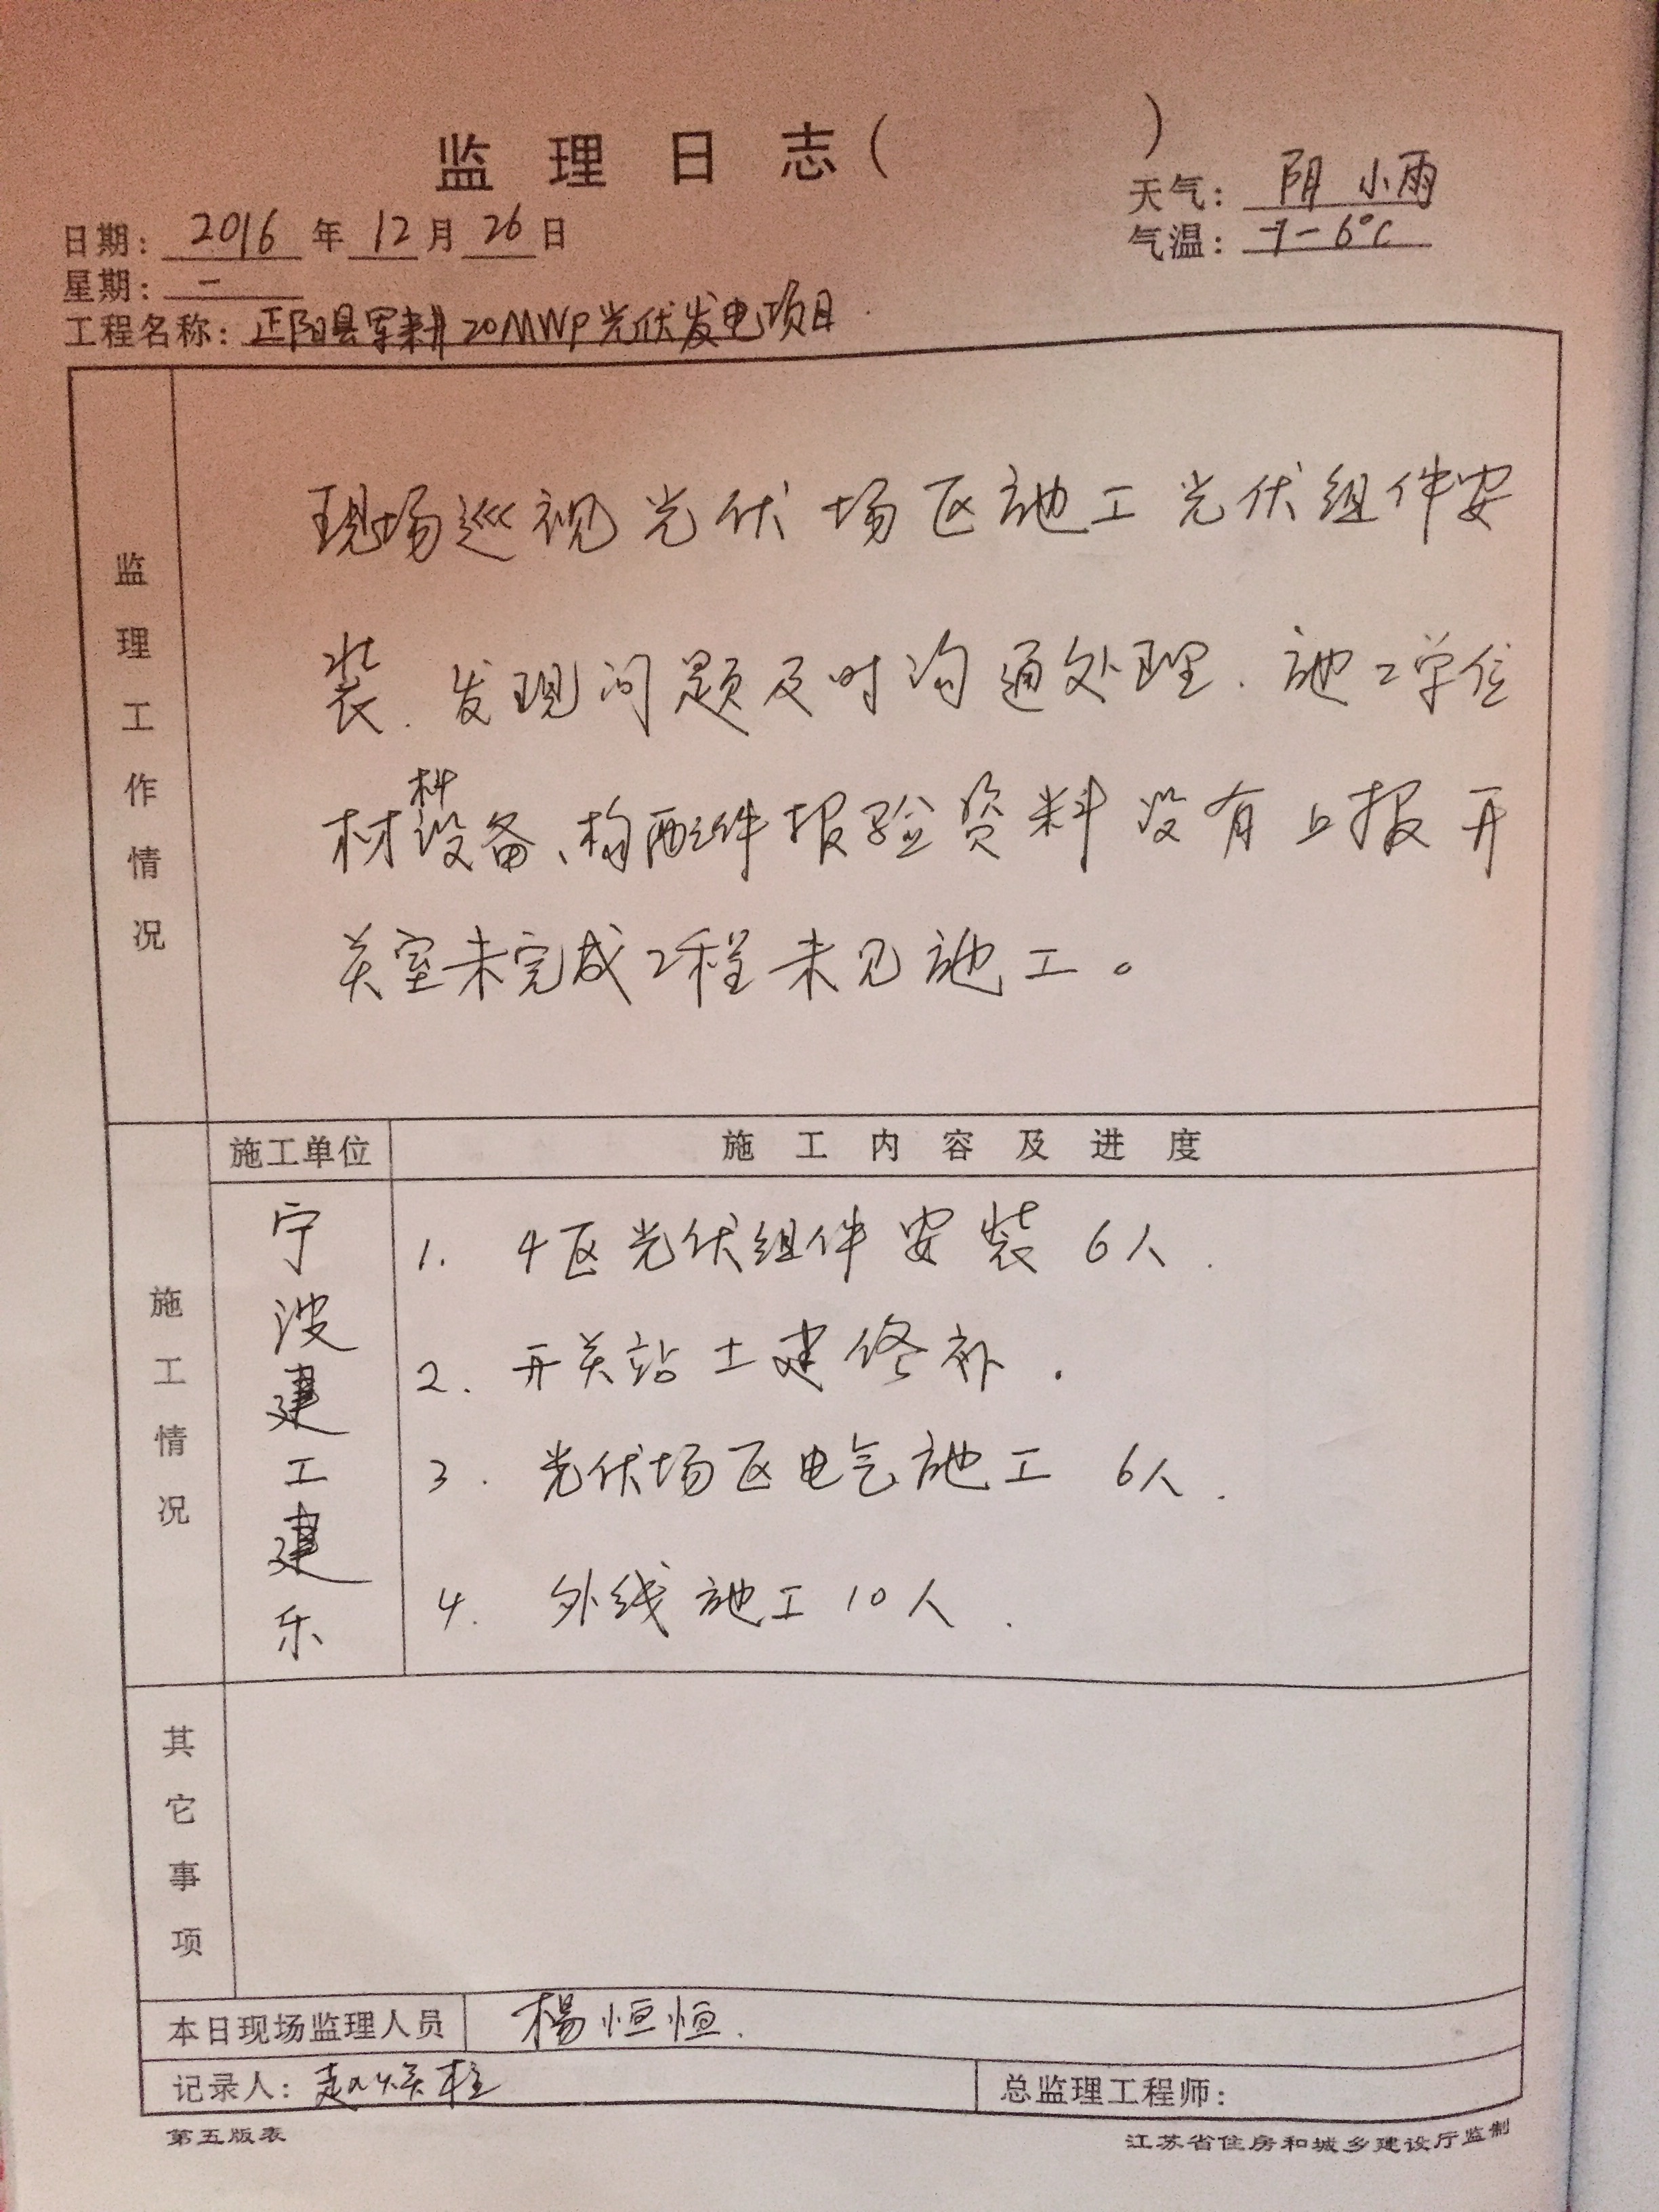 监理日志( )
天气: 阴 小雨
日期: 2016年12月26日
气温: -1-6°C
星期: 一
工程名称: 正阳县军耕20MWP光伏发电项目.
监理工作情况
现场巡视光伏场区施工光伏组件安
装.发现问题及时沟通处理.施工单位
材料设备、构配件报验资料没有上报开
关室未完成工程未见施工。
施工情况
施工单位
施工内容及进度
宁波建工建乐
1. 4区光伏组件安装6人.
2. 开关站土建修补.
3. 光伏场区电气施工 6人.
4. 外线施工10人.
其它事项
本日现场监理人员 楊恒恒.
记录人: 赵 柱
总监理工程师:
第五版表
江苏省住房和城乡建设厅监制